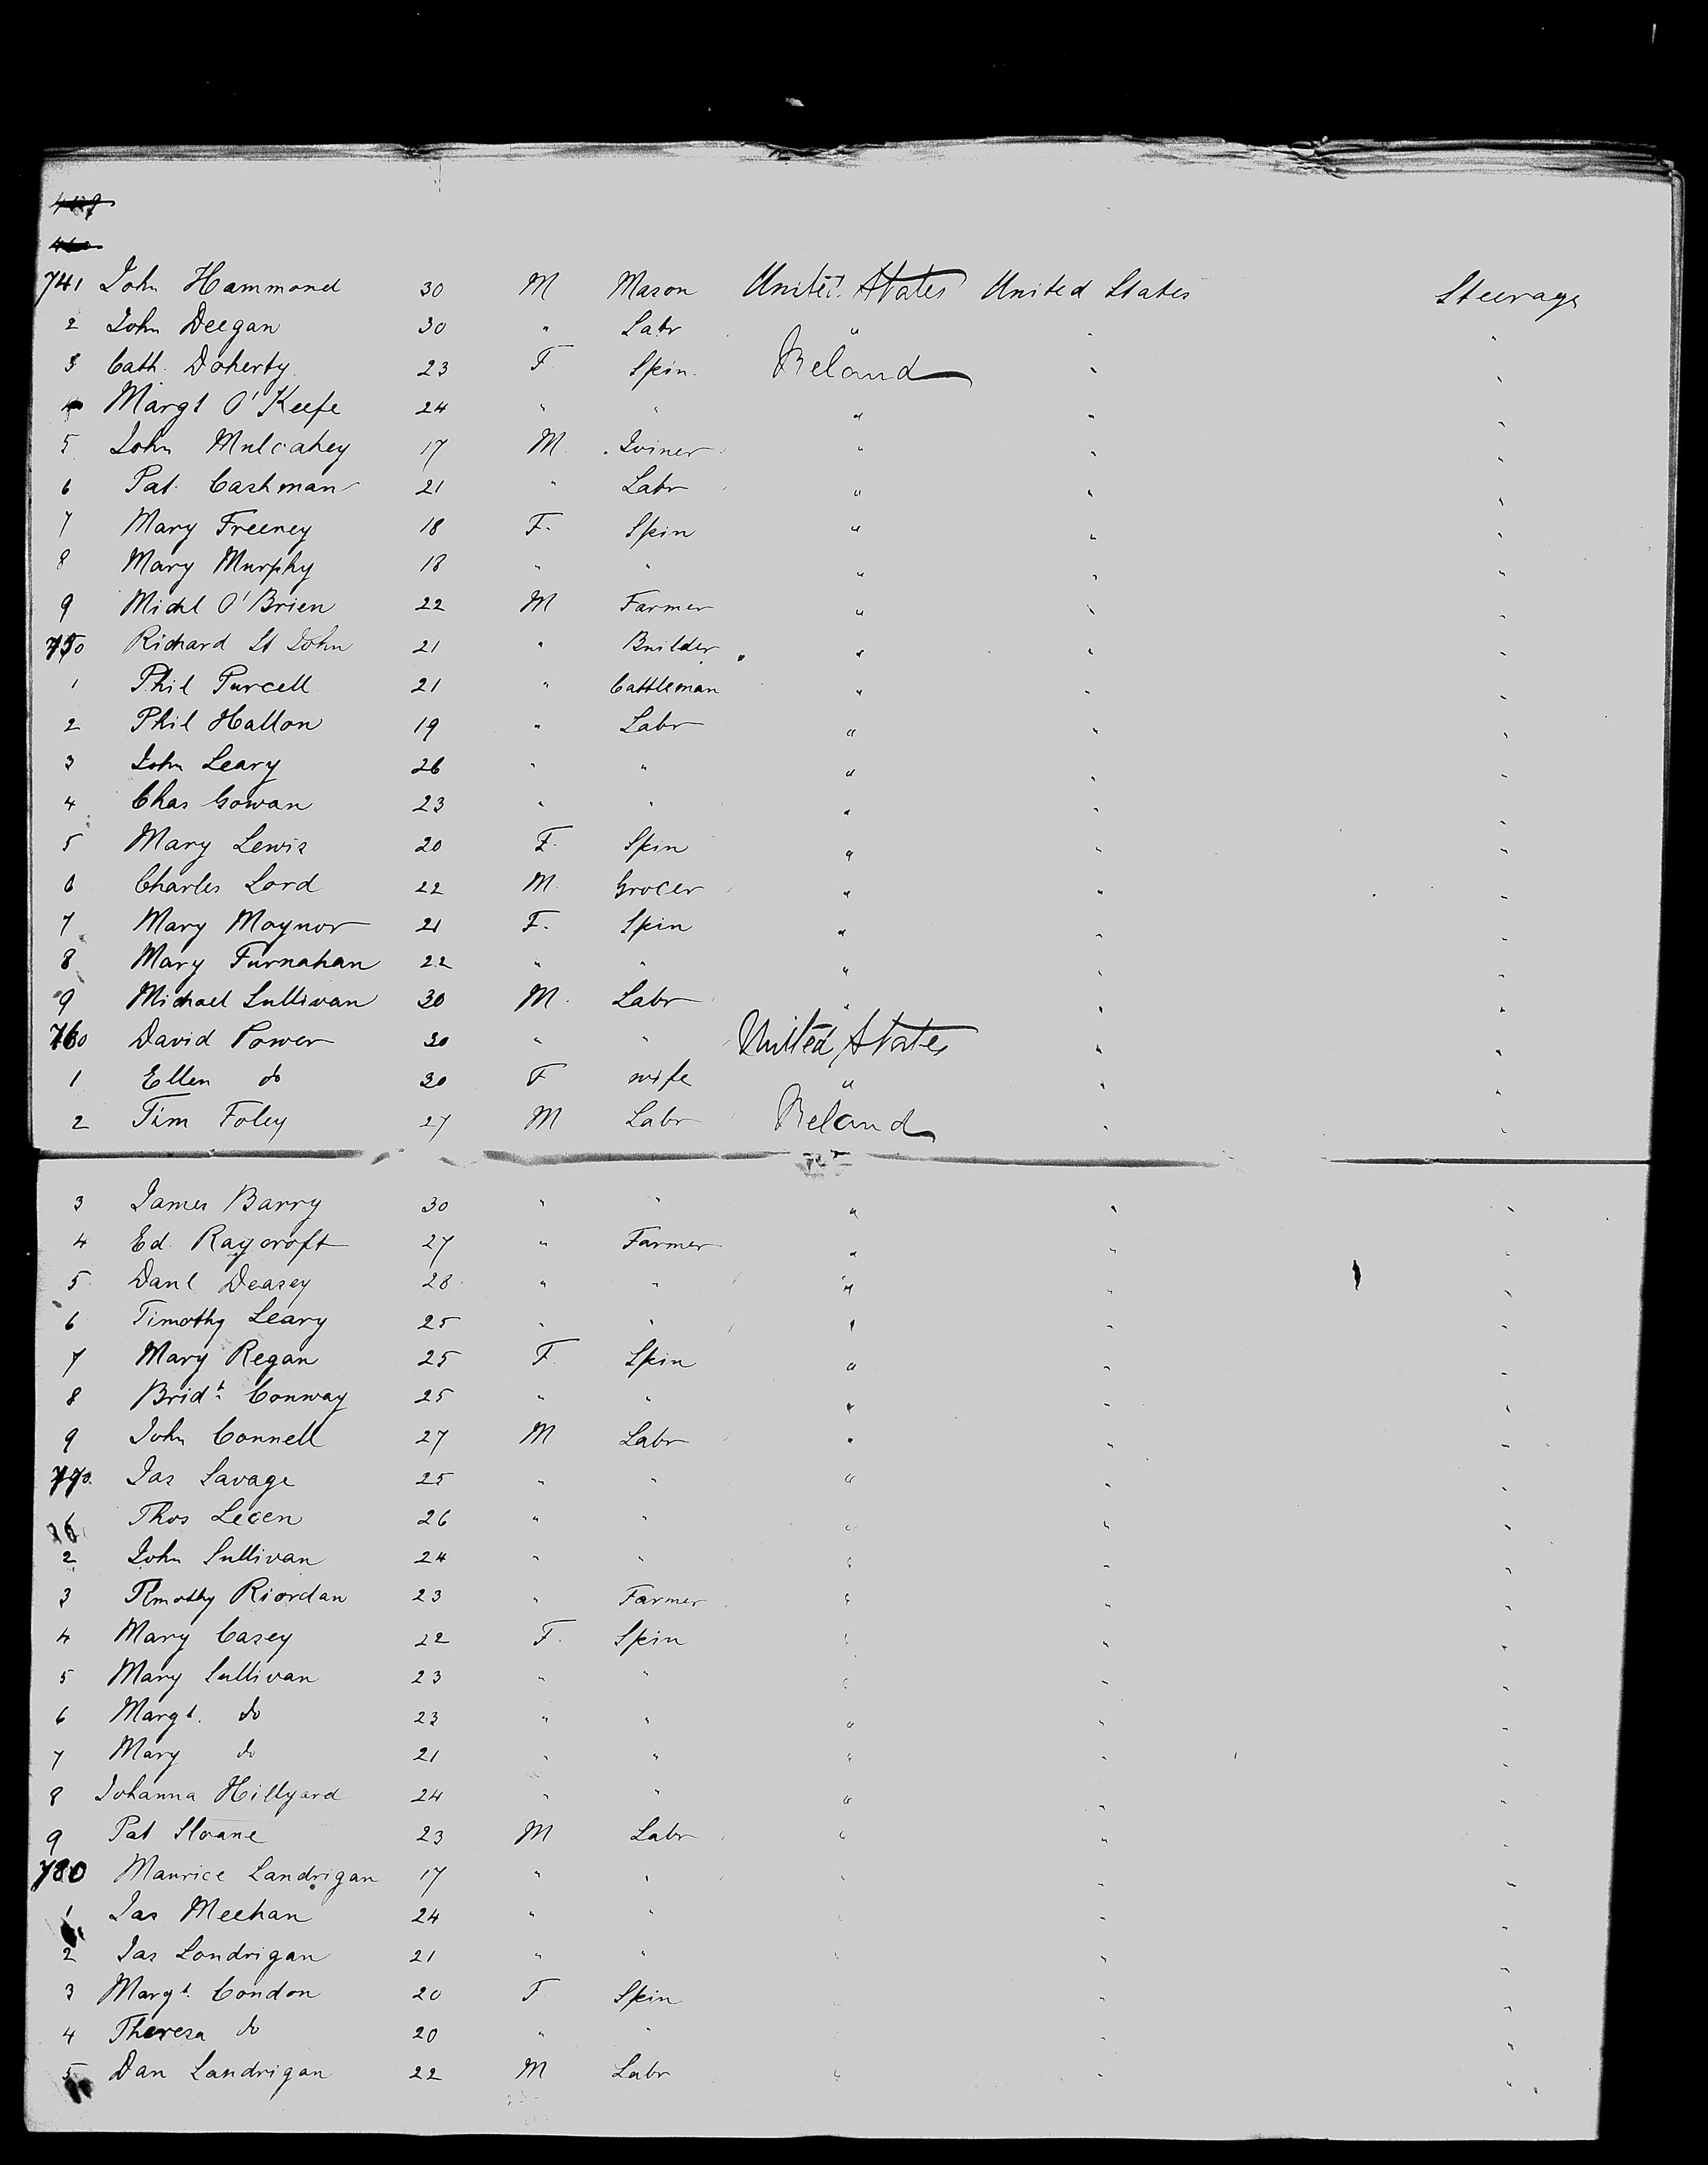 741 John Hammond 30 M Mason United States United States Steerage
2 John Deegan 30 " Labr " " "
3 Cath. Doherty 23 F Spin. Ireland " "
4 Margt O'Keefe 24 " " " " "
5 John Mulcahey 17 M. Joiner " " "
6 Pat. Cashman 21 " Labr " " "
7 Mary Freeney 18 F. Spin " " "
8 Mary Murphy 18 " " " " "
9 Michl O'Brien 22 M Farmer " " "
750 Richard St John 21 " Builder " " "
1 Phil Purcell 21 " Cattleman " " "
2 Phil Hallon 19 " Labr " " "
3 John Leary 26 " " " " "
4 Chas Gowan 23 " " " " "
5 Mary Lewis 20 F. Spin " " "
6 Charles Lord 22 M. Grocer " " "
7 Mary Moynor 21 F. Spin " " "
8 Mary Furnahan 22 " " " " "
9 Michael Sullivan 30 M. Labr " " "
760 David Power 30 " " United States " "
1 Ellen do 30 F wife " " "
2 Tim Foley 27 M Labr Ireland " "
3 James Barry 30 " " " " "
4 Ed. Raycroft 27 " Farmer " " "
5 Danl Deasey 28 " " " " "
6 Timothy Leary 25 " " " " "
7 Mary Regan 25 F. Spin " " "
8 Bridt Conway 25 " " " " "
9 John Connell 27 M Labr " " "
770 Jas Savage 25 " " " " "
1 Thos 26 " " " " "
2 John Sullivan 24 " " " " "
3 Timothy Riordan 23 " Farmer " " "
4 Mary Casey 22 F. Spin " " "
5 Mary Sullivan 23 " " " " "
6 Margt. do 23 " " " " "
7 Mary do 21 " " " " "
8 Johanna Hillyard 24 " " " " "
9 Pat Sloane 23 M Labr " " "
780 Maurice Landrigan 17 " " " " "
1 Jas Meehan 24 " " " " "
2 Jas Londrigan 21 " " " " "
3 Margt. Condon 20 F Spin " "
4 Theresa do 20 " " " "
5 Dan Landrigan 22 M Labr " " "